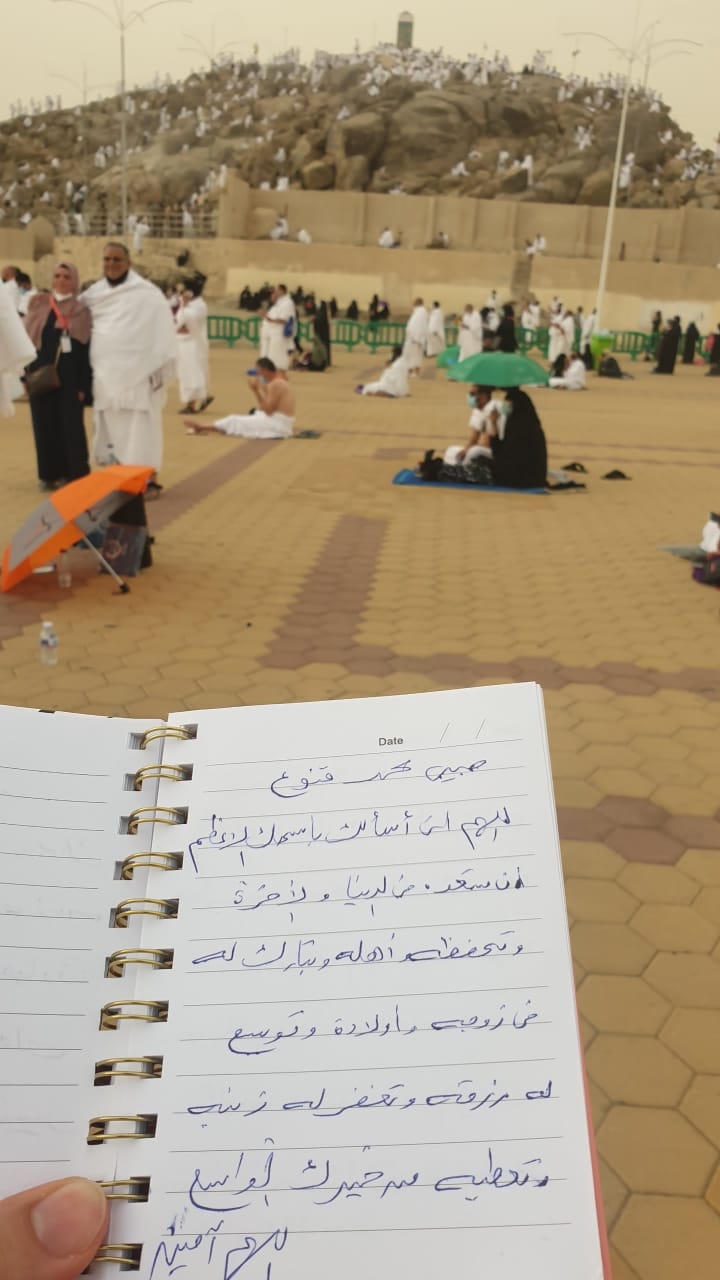 Date / /
حبيبي محمد قنوع
اللهم اني أسألك باسمك الاعظم
أن تسعده في الدنيا والأخرة
وتحفظه وأهله وتبارك له
في زوجه وأولادة وتوسع
له رزقه وتغفر له ذنبه
وتعطيه من خيرك الواسع
اللهم آمين